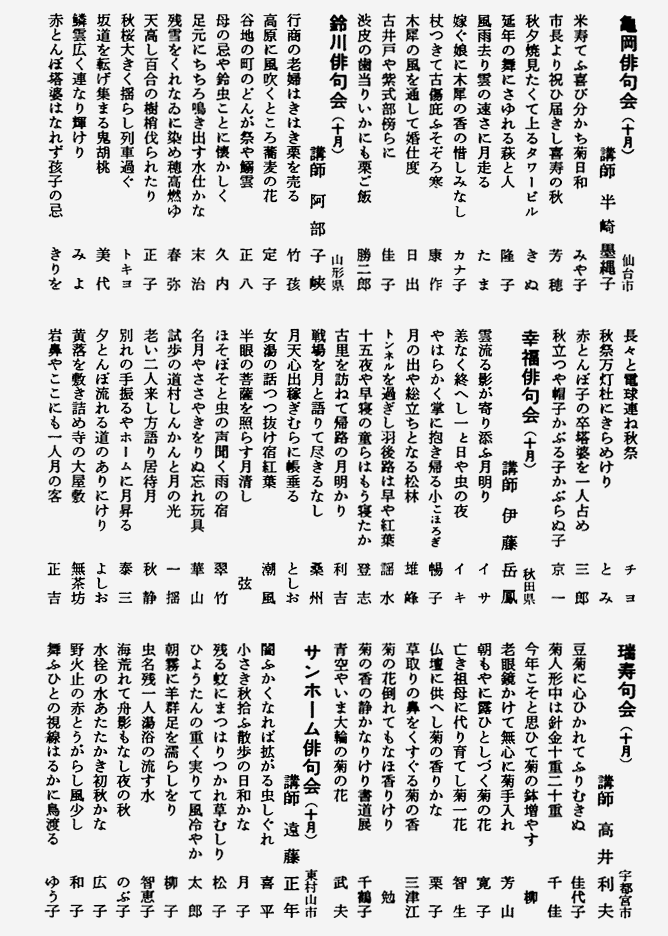 亀岡俳句会（十月）
仙台市
講師 半崎墨縄子
米寿てふ喜び分かち菊日和 みや子
市長より祝ひ届きし喜寿の秋 芳穂
秋夕焼見たくて上るタワービル きぬ
延年の舞にさゆれる萩と人 隆子
風雨去り雲の速さに月走る たま
嫁ぐ娘に木犀の香の惜しみなし カナ子
杖つきて古傷庇ふそぞろ寒 康作
木犀の風を通して婚仕度 日出
古井戸や紫式部傍らに 佳子
渋皮の歯当りいかにも栗ご飯 勝二郎
鈴川俳句会（十月）
山形県
講師 阿部子峡
行商の老婦はきはき栗を売る 竹孩
高原に風吹くところ蕎麦の花 定子
谷地の町のどんが祭や鰯雲 正八
母の忌や鈴虫ことに懐かしく 久内
足元にちちろ鳴き出す水仕かな 末治
残雪をくれなゐに染め穂高燃ゆ 春弥
天高し百合の樹梢伐られたり 正子
秋桜大きく揺らし列車過ぐ トキヨ
坂道を転げ集まる鬼胡桃 美代
鱗雲広く連なり輝けり みよ
赤とんぼ塔婆はなれず孩子の忌 きりを
長々と電球連ね秋祭 チヨ
秋祭万灯杜にきらめけり とみ
赤とんぼ子の卒塔婆を一人占め 三郎
秋立つや帽子かぶる子かぶらぬ子 京一
幸福俳句会（十月）
秋田県
講師 伊藤岳鳳
雲流る影が寄り添ふ月明り イサ
恙なく終へし一と日や虫の夜 イキ
やはらかく掌に抱き帰る小こほろぎ 暢子
月の出や総立ちとなる松林 堆峰
トンネルを過ぎし羽後路は早や紅葉 謡水
十五夜や早寝の童らはもう寝たか 登志
古里を訪ねて帰路の月明かり 利吉
戦場を月と語りて尽きるなし 桑州
月天心出稼ぎむらに帳垂る としお
女湯の話つつ抜け宿紅葉 潮風
半眼の菩薩を照らす月清し 弦
ほそぼそと虫の声聞く雨の宿 翠竹
名月やささやきをりぬ忘れ玩具 華山
試歩の道村しんかんと月の光 一揺
老い二人来し方語り居待月 秋静
別れの手振るやホームに月昇る 泰三
夕とんぼ流れる道のありにけり よしお
黄落を敷き詰め寺の大屋敷 無茶坊
岩鼻やここにも一人月の客 正吉
瑞寿句会（十月）
宇都宮市
講師 高井利夫
豆菊に心ひかれてふりむきぬ 佳代子
菊人形中は針金十重二十重 千佳
今年こそと思ひて菊の鉢増やす 柳
老眼鏡かけて無心に菊手入れ 芳山
朝もやに露ひとしづく菊の花 寛子
亡き祖母に代り育てし菊一花 智生
仏壇に供へし菊の香りかな 栗子
草取りの鼻をくすぐる菊の香 三津江
菊の花倒れてもなほ香りけり 勉
菊の香の静かなりけり書道展 千鶴子
青空やいま大輪の菊の花 武夫
サンホーム俳句会（十月）
東村山市
講師 遠藤正年
闇ふかくなれば拡がる虫しぐれ 喜平
小さき秋拾ふ散歩の日和かな 月子
残る蚊にまつはりつかれ草むしり 松子
ひょうたんの重く実りて風冷やか 太郎
朝霧に羊群足を濡らしをり 柳子
虫名残一人湯浴の流す水 智恵子
海荒れて舟影もなし夜の秋 のぶ子
水栓の水あたたかき初秋かな 広子
野火止の赤とうがらし風少し 和子
舞ふひとの視線はるかに鳥渡る ゆう子